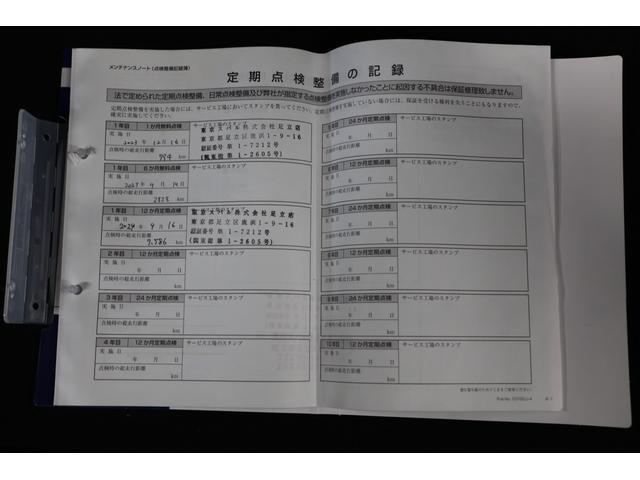 メンテナンスノート(点検整備記録簿)
定期点検整備の記録
法で定められた定期点検整備、日常点検整備及び弊社が指定する点検整備を実施しなかったことに起因する不具合は保証修理致しません。
定期点検を実施した場合には、サービス工場においてスタンプを貰ってください。定期点検を実施していない場合には、保証を受ける権利を失うことにもなりますので、
確実に実施してください。
1年目 1か月無料点検 サービス工場のスタンプ
実施日
2023年12月16日
点検時の総走行距離
984 km
東京スバル株式会社足立店
東京都足立区鹿浜1-9-16
認証番号第1-7212号
(関東指第1-2605号)
1年目 6か月無料点検 サービス工場のスタンプ
実施日
2024年4月14日
点検時の総走行距離
2828 km
1年目 12か月定期点検 サービス工場のスタンプ
実施日
2024年9月16日
点検時の総走行距離
7,586 km
東京スバル株式会社足立店
東京都足立区鹿浜1-9-16
認証番号第1-7212号
(関東指第1-2605号)
2年目 12か月定期点検 サービス工場のスタンプ
実施日
年 月 日
点検時の総走行距離
km
3年目 24か月定期点検 サービス工場のスタンプ
実施日
年 月 日
点検時の総走行距離
km
4年目 12か月定期点検 サービス工場のスタンプ
実施日
年 月 日
点検時の総走行距離
km
24か月定期点検 サービス工場のスタンプ
実施日
年 月 日
点検時の総走行距離
km
12か月定期点検 サービス工場のスタンプ
実施日
年 月 日
点検時の総走行距離
km
7年目 24か月定期点検 サービス工場のスタンプ
実施日
年 月 日
点検時の総走行距離
km
12か月定期点検 サービス工場のスタンプ
実施日
年 月 日
点検時の総走行距離
km
24か月定期点検 サービス工場のスタンプ
実施日
年 月 日
点検時の総走行距離
km
10年目 12か月定期点検 サービス工場のスタンプ
実施日
年 月 日
点検時の総走行距離
km